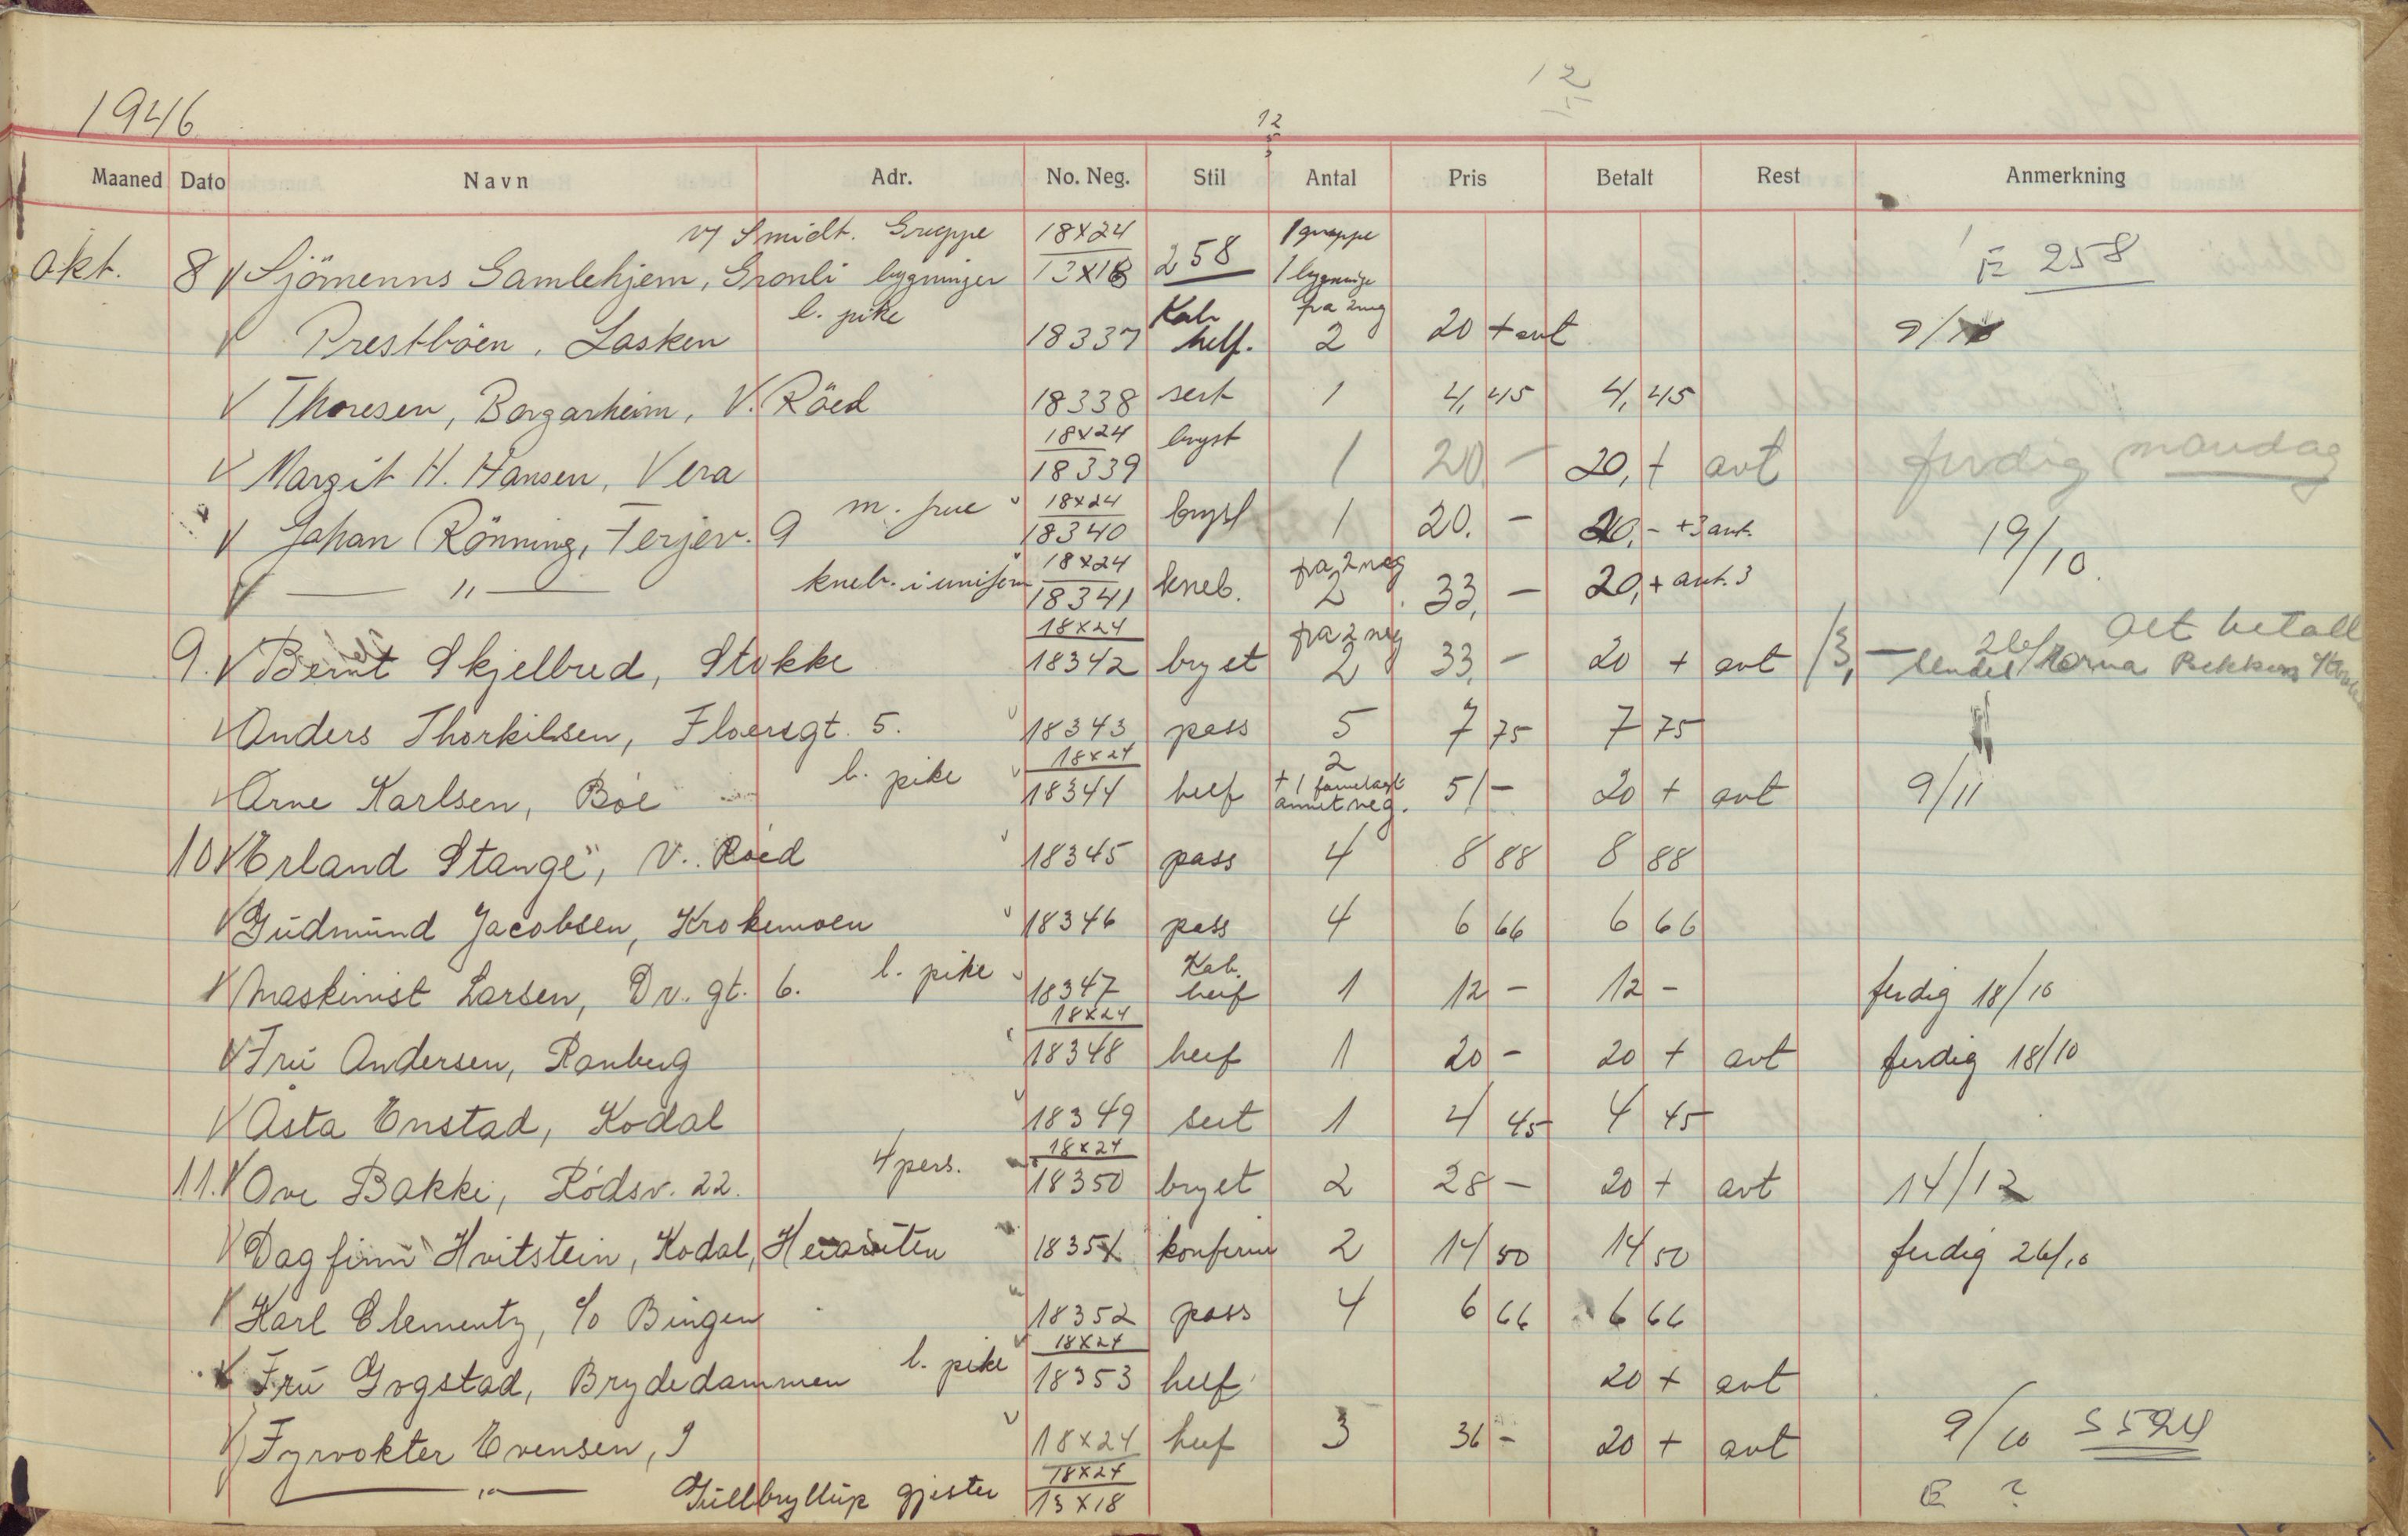 12
1946
12
Maaned Dato Navn Adr. No. Neg. Stil Antal Pris Betalt Rest Anmerkning
v/ Smidt. Gruppe 18x24 1 gruppe
Okt. 8 V Sjömenns Gamlehjem, Grønli bygninger 13x18 258 1 bygninge E 258
l. pike Kab fra 2 neg
V Prestbøen, Lasken 18337 helf. 2 20 + avt 9/10
V Thoresen, Borgarheim, V. Röed 18338 sert 1 4,45 4,45
18x24 bryst
V Margit H. Hansen, Vera 18339 1 20 - 20, + avt ferdig mandag
m. frue 18x24
V Johan Rönning, Terjev. 9 18340 bryst 1 20. - 20,- +3 avt. 19/10.
kneb. i uniform 18x24 fra 2 neg
V — " — 18341 kneb. 2 33, - 20, + avt. 3
18x24 fra 2 neg Alt betalt
9. V Bernt Skjelbred, Stokke 18342 bryst 2 33, - 20 + avt 13, - sendes
V Anders Thorkilsen, Floersgt. 5. 18343 pass 5 7 75 7 75
l. pike 18x24 2
V Arne Karlsen, Böe 18344 helf + 1 annet neg. 51 - 20 + avt 9/11
10 V Erland Stange, V. Röed 18345 pass 4 8 88 8 88
V Gudmund Jacobsen, Krokemoen 18346 pass 4 6 66 6 66
l. pike Kab.
V Maskinist Larsen, Dr. gt. 6. 18347 helf 1 12 - 12 - ferdig 18/10
18x24
V Fru Andersen, Ranberg 18348 helf 1 20 - 20 + avt ferdig 18/10
V Åsta Enstad, Kodal 18349 sert 1 4 45 4 45
4 pers. 18x24
11. V Ove Bakke, Rødsv. 22. 18350 bryst 2 28 - 20 + avt 14/12
V Dagfinn Hvitstein, Kodal, 18351 konfirm 2 14 50 14 50 ferdig 26/10
V Karl Clementz, c/o Bingen 18352 pass 4 6 66 6 66
l. pike 18x24
V Fru Gogstad, Brydedammen 18353 helf 20 + avt
V Fyrvokter Evensen, 18x24 helf 3 36 - 20 + avt 9/10 S 524
18x24
— " — Gullbryllup gjester 13x18 E ?